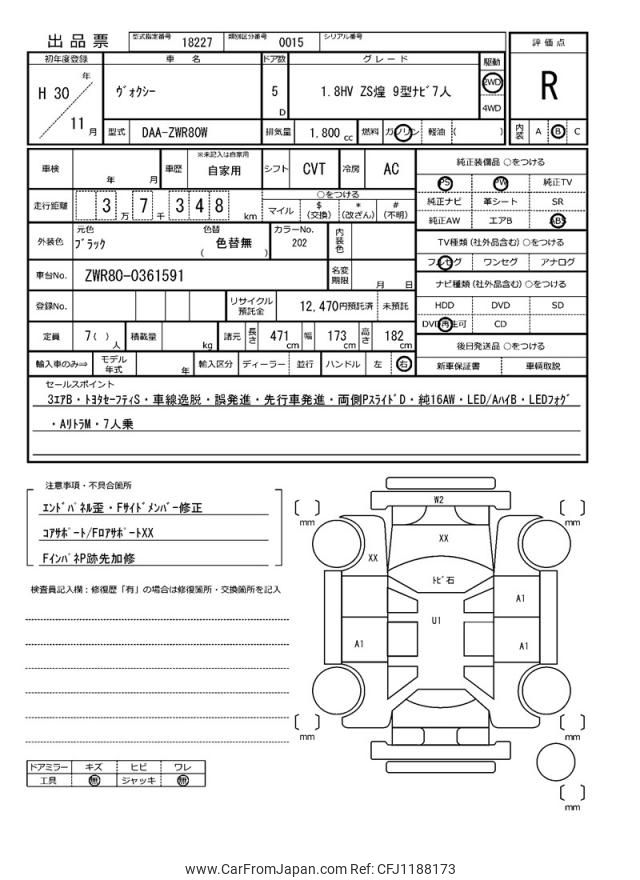 出品票
型式指定番号 18227 類別区分番号 0015 シリアル番号
評価点
R
内装 A B C
初年度登録 車名 ドア数 グレード 駆動
H 30 年 11 月
ヴォクシー
5 D
1.8HV ZS煌 9型ナビ7人
2WD
4WD
型式 DAA-ZWR80W 排気量 1.800 cc 燃料 ガソリン 軽油 ( )
車検 年 月 車歴 ※未記入は自家用 自家用 シフト CVT 冷房 AC
走行距離 3 万 7 千 3 4 8 km
○をつける
マイル $(交換) *(改ざん) #(不明)
外装色 元色 ブラック 色替 ( 色替無 ) カラーNo. 202 内装色
車台No. ZWR80-0361591 名変期限 月 日
登録No. リサイクル預託金 12.470円預託済 未預託
定員 7( ) 人 積載量 kg 諸元 長さ 471 cm 幅 173 cm 高さ 182 cm
輸入車のみ⇒ モデル年式 年 輸入区分 ディーラー 並行 ハンドル 左 右
純正装備品 ○をつける
PS PW 純正TV
純正ナビ 革シート SR
純正AW エアB ABS
TV種類 (社外品含む) ○をつける
フルセグ ワンセグ アナログ
ナビ種類 (社外品含む) ○をつける
HDD DVD SD
DVD再生可 CD
後日発送品 ○をつける
新車保証書 車輌取説
セールスポイント
3エアB・トヨタセーフティS・車線逸脱・誤発進・先行車発進・両側PスライドD・純16AW・LED/AハイB・LEDフォグ
・AリトラM・7人乗
注意事項・不具合箇所
エンドパネル歪・Fサイドメンバー修正
コアサポート/FロアサポートXX
FインパネP跡先加修
検査員記入欄：修復歴「有」の場合は修復箇所・交換箇所を記入
ドアミラー キズ ヒビ ワレ
工具 無 ジャッキ 無
W2
mm
mm
XX
XX
トビ石
A1
U1
A1
A1
mm
mm
mm
www.CarFromJapan.com Ref: CFJ1188173